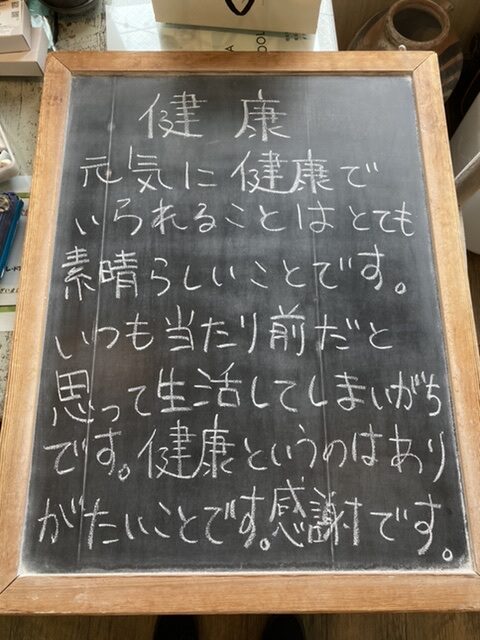 健康
元気に健康で
いられることはとても
素晴らしいことです。
いつも当たり前だと
思って生活してしまいがち
です。健康というのはあり
がたいことです。感謝です。